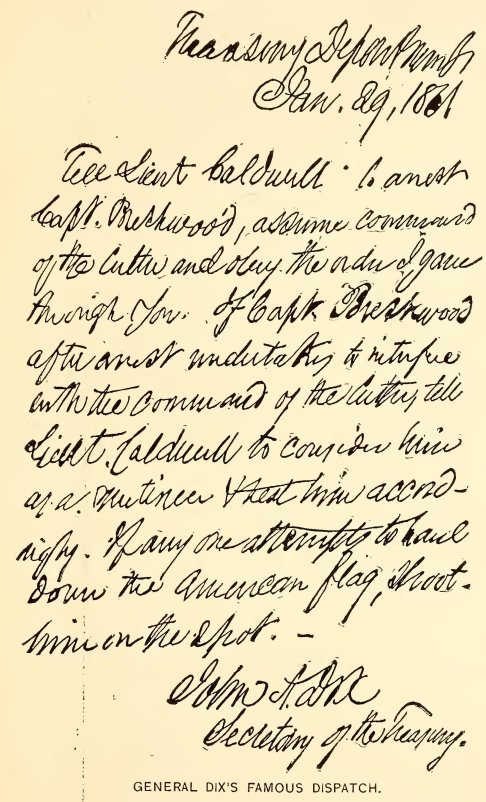 Treasury Department
Jan. 29, 1861
Tell Lieut Caldwell to arrest
Capt. Breshwood, assume command
of the Cutter and obey the order I gave
through you. If Capt. Breshwood
after arrest undertakes to interfere
with the command of the Cutter, tell
Lieut. Caldwell to consider him
as a mutineer & treat him accord-
ingly. If any one attempts to haul
down the American flag, shoot
him on the spot. —
John A. Dix
Secretary of the Treasury.
GENERAL DIX'S FAMOUS DISPATCH.